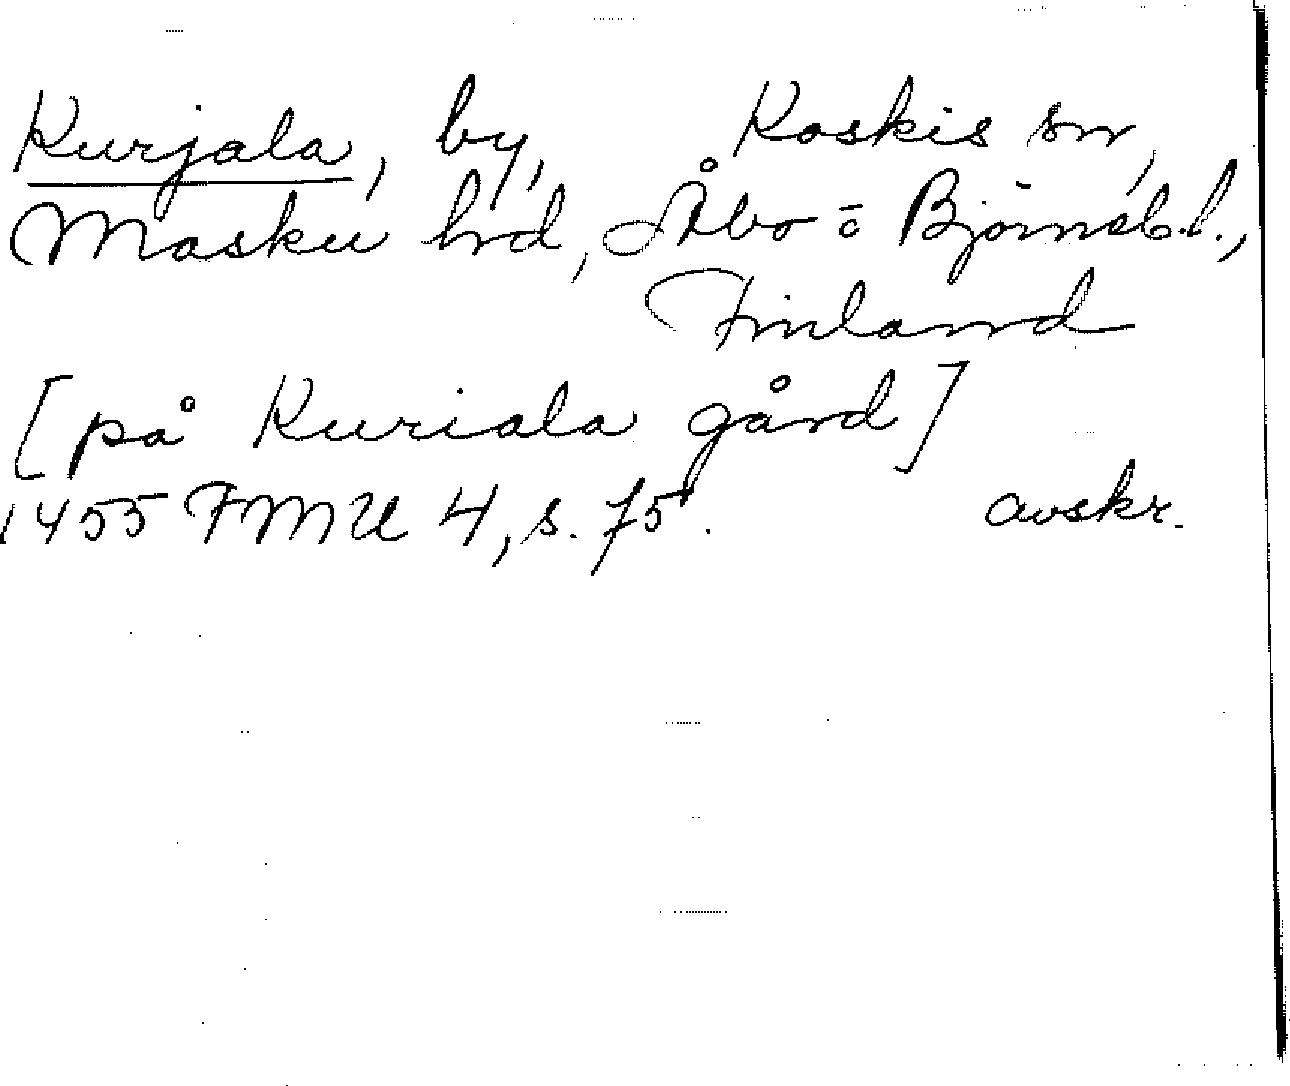 Kurjala, by, Koskis sn,
Masku hd, Åbo o Björneb.l.,
Finland
[på Kuriala gård]
1455 FMU 4, s. 75. avskr.